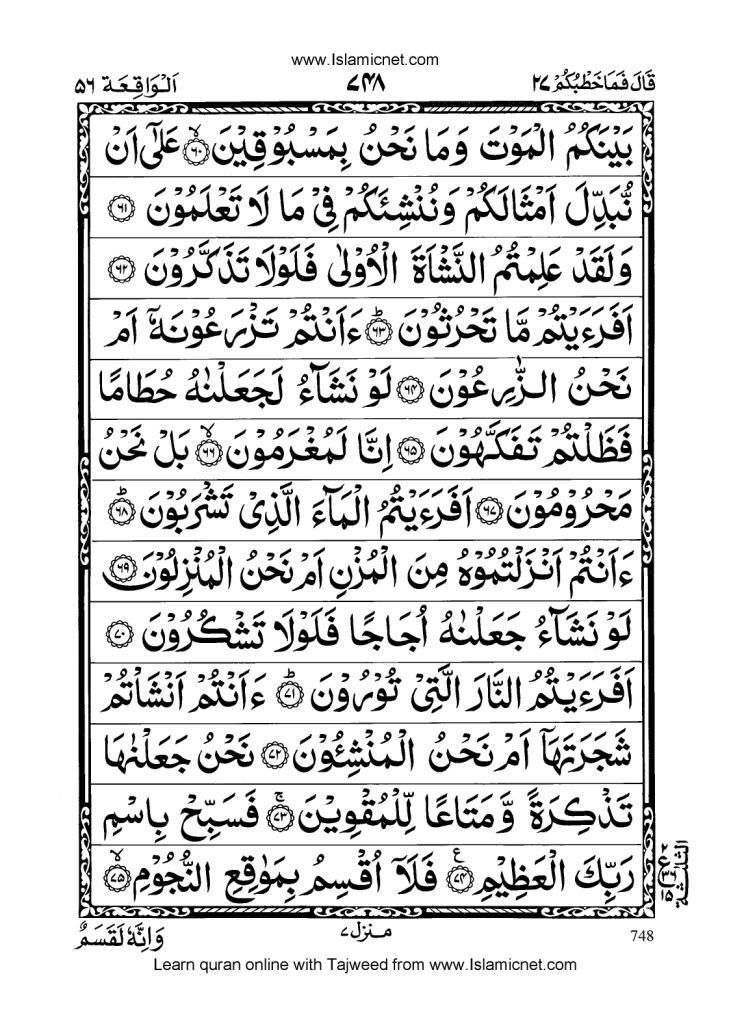 www.Islamicnet.com
قَالَ فَمَا خَطْبُكُمْ ٢٧ ٧٤٨ اَلْوَاقِعَة ٥٦
بَيْنَكُمُ الْمَوْتَ وَمَا نَحْنُ بِمَسْبُوْقِيْنَ ۙ‏﴿٦٠﴾ عَلٰٓى اَنْ
نُّبَدِّلَ اَمْثَالَكُمْ وَنُنْشِئَكُمْ فِيْ مَا لَا تَعْلَمُوْنَ ﴿٦١﴾
وَلَقَدْ عَلِمْتُمُ النَّشْاَةَ الْاُوْلٰى فَلَوْلَا تَذَكَّرُوْنَ ﴿٦٢﴾
اَفَرَءَيْتُمْ مَّا تَحْرُثُوْنَ ؕ﴿٦٣﴾ ءَاَنْتُمْ تَزْرَعُوْنَهٗۤ اَمْ
نَحْنُ الزّٰرِعُوْنَ ﴿٦٤﴾ لَوْ نَشَآءُ لَجَعَلْنٰهُ حُطَامًا
فَظَلْتُمْ تَفَكَّهُوْنَ ﴿٦٥﴾ اِنَّا لَمُغْرَمُوْنَ ۙ﴿٦٦﴾ بَلْ نَحْنُ
مَحْرُوْمُوْنَ ﴿٦٧﴾ اَفَرَءَيْتُمُ الْمَآءَ الَّذِيْ تَشْرَبُوْنَ ؕ﴿٦٨﴾
ءَاَنْتُمْ اَنْزَلْتُمُوْهُ مِنَ الْمُزْنِ اَمْ نَحْنُ الْمُنْزِلُوْنَ ﴿٦٩﴾
لَوْ نَشَآءُ جَعَلْنٰهُ اُجَاجًا فَلَوْلَا تَشْكُرُوْنَ ﴿٧٠﴾
اَفَرَءَيْتُمُ النَّارَ الَّتِيْ تُوْرُوْنَ ؕ﴿٧١﴾ ءَاَنْتُمْ اَنْشَاْتُمْ
شَجَرَتَهَاۤ اَمْ نَحْنُ الْمُنْشِئُوْنَ ﴿٧٢﴾ نَحْنُ جَعَلْنٰهَا
تَذْكِرَةً وَّمَتَاعًا لِّلْمُقْوِيْنَ ۚ﴿٧٣﴾ فَسَبِّحْ بِاسْمِ
رَبِّكَ الْعَظِيْمِ ﴿٧٤﴾ فَلَاۤ اُقْسِمُ بِمَوٰقِعِ النُّجُوْمِ ۙ﴿٧٥﴾
الثلثة
وَاِنَّهٗ لَقَسَمٌ منزل ٧ 748
Learn quran online with Tajweed from www.Islamicnet.com